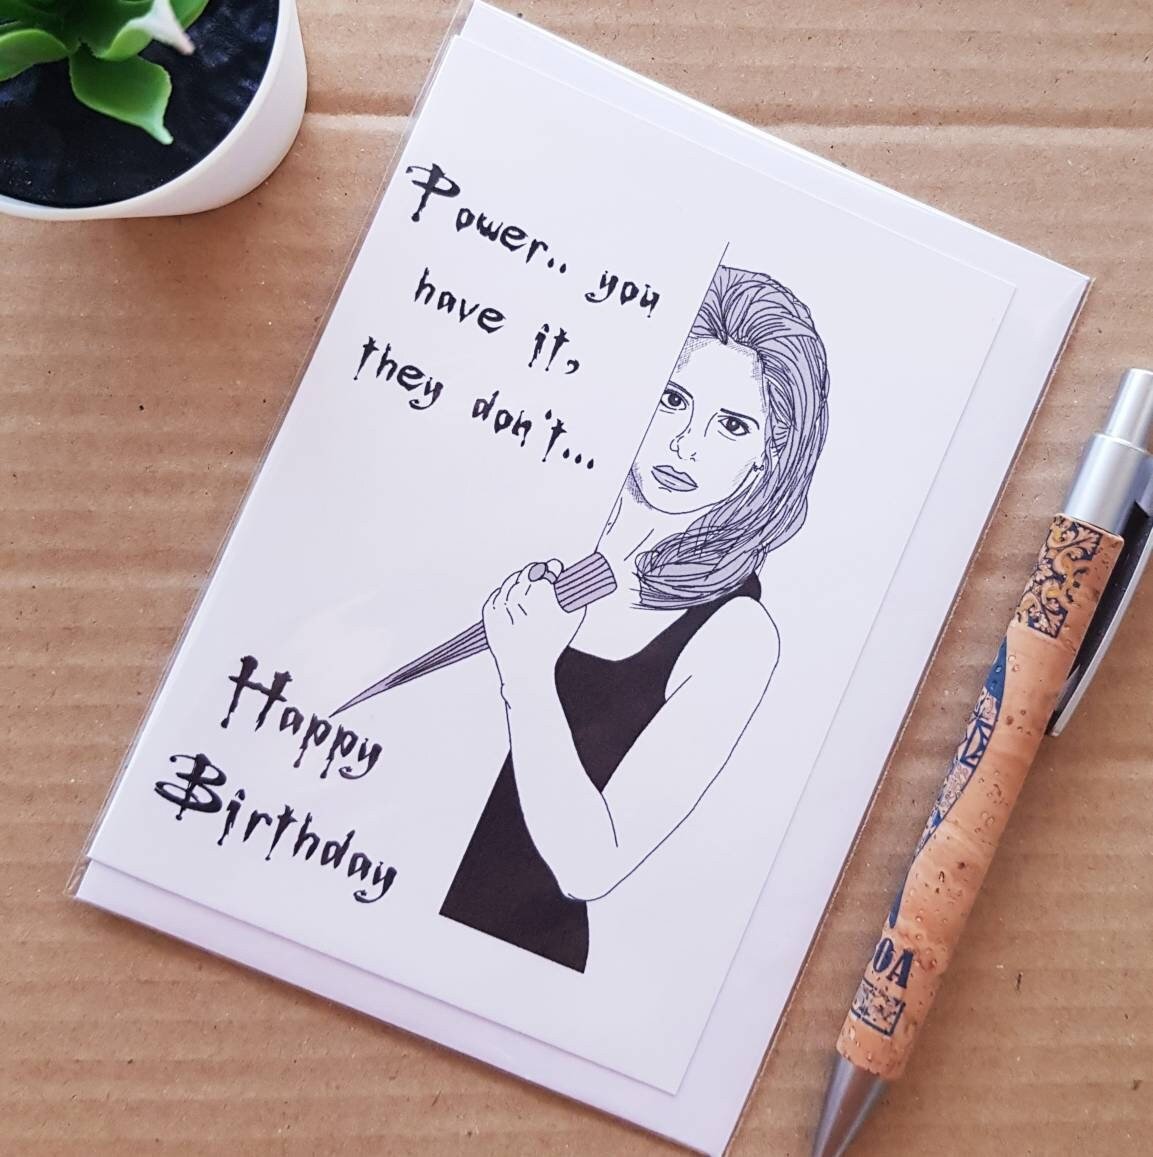 Power.. you
have it,
they don't...
Happy
Birthday
OA